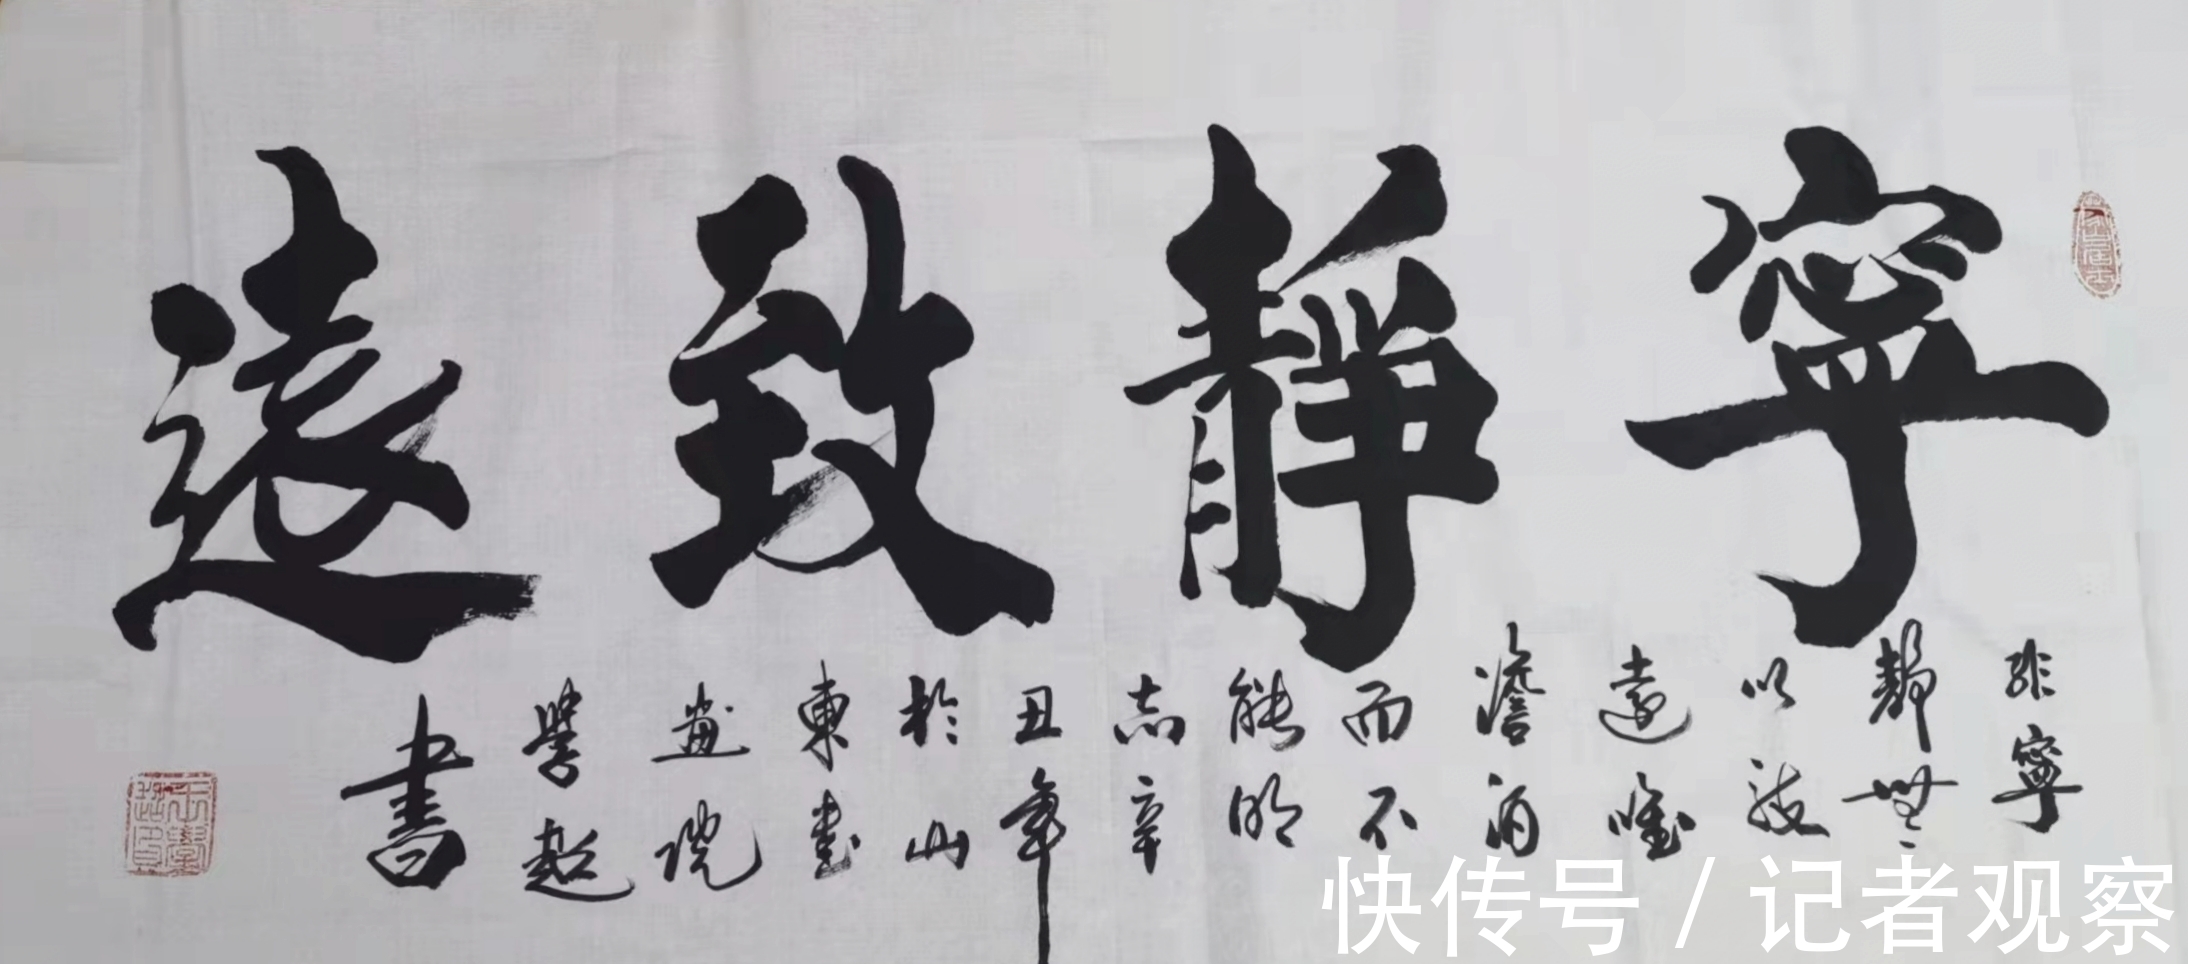 寧靜致遠
非寧
靜無
以致
遠唯
澹泊
而不
能明
志辛
丑年
於山
東書
畫院
學超
書
快传号/记者观察